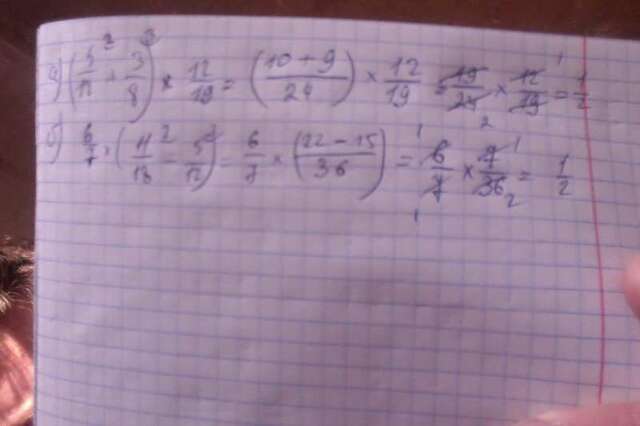 а) (5/12 ² + 3/8 ³) × 12/19 = ((10 + 9)/24) × 12/19 = 19/24 × 12/19 = 1/2
б) 6/7 × (11/18 ² - 5/12 ³) = 6/7 × ((22 - 15)/36) = 6/7 × 7/36 = 1/2